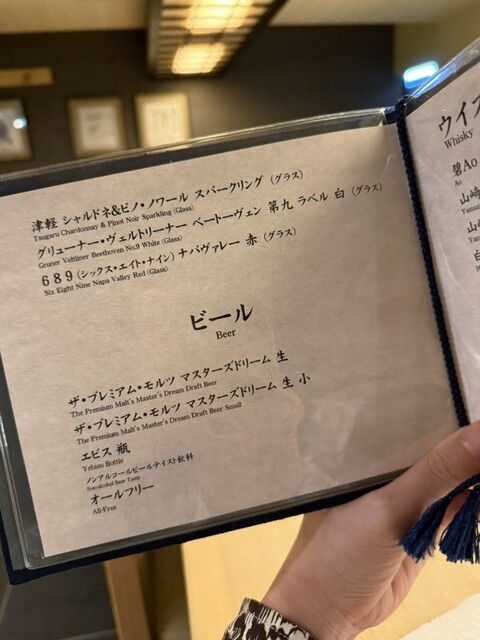 津軽 シャルドネ&ピノ・ノワール スパークリング (グラス)
Tsugaru Chardonnay & Pinot Noir Sparkling (Glass)
グリューナー・ヴェルトリーナー ベートーヴェン 第九 ラベル 白 (グラス)
Gruner Veltliner Beethoven No.9 White (Glass)
689 (シックス・エイト・ナイン) ナパヴァレー 赤 (グラス)
Six Eight Nine Napa Valley Red (Glass)
ビール
Beer
ザ・プレミアム・モルツ マスターズドリーム 生
The Premium Malt's Master's Dream Draft Beer
ザ・プレミアム・モルツ マスターズドリーム 生 小
The Premium Malt's Master's Dream Draft Beer Small
エビス 瓶
Yebisu Bottle
ノンアルコールビールテイスト飲料
Non-alcohol Beer Taste
オールフリー
All-Free
ウイス
Whisky
碧Ao
Ao
山崎
Yama
山崎